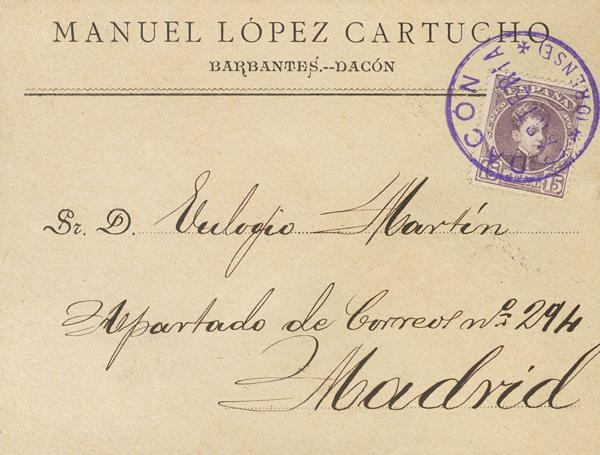 MANUEL LÓPEZ CARTUCHO
BARBANTES.--DACÓN
DACÓN
(ORENSE)
ESPAÑA
15 15
Sr. D. Eulogio Martín
Apartado de Correos nº 294
Madrid